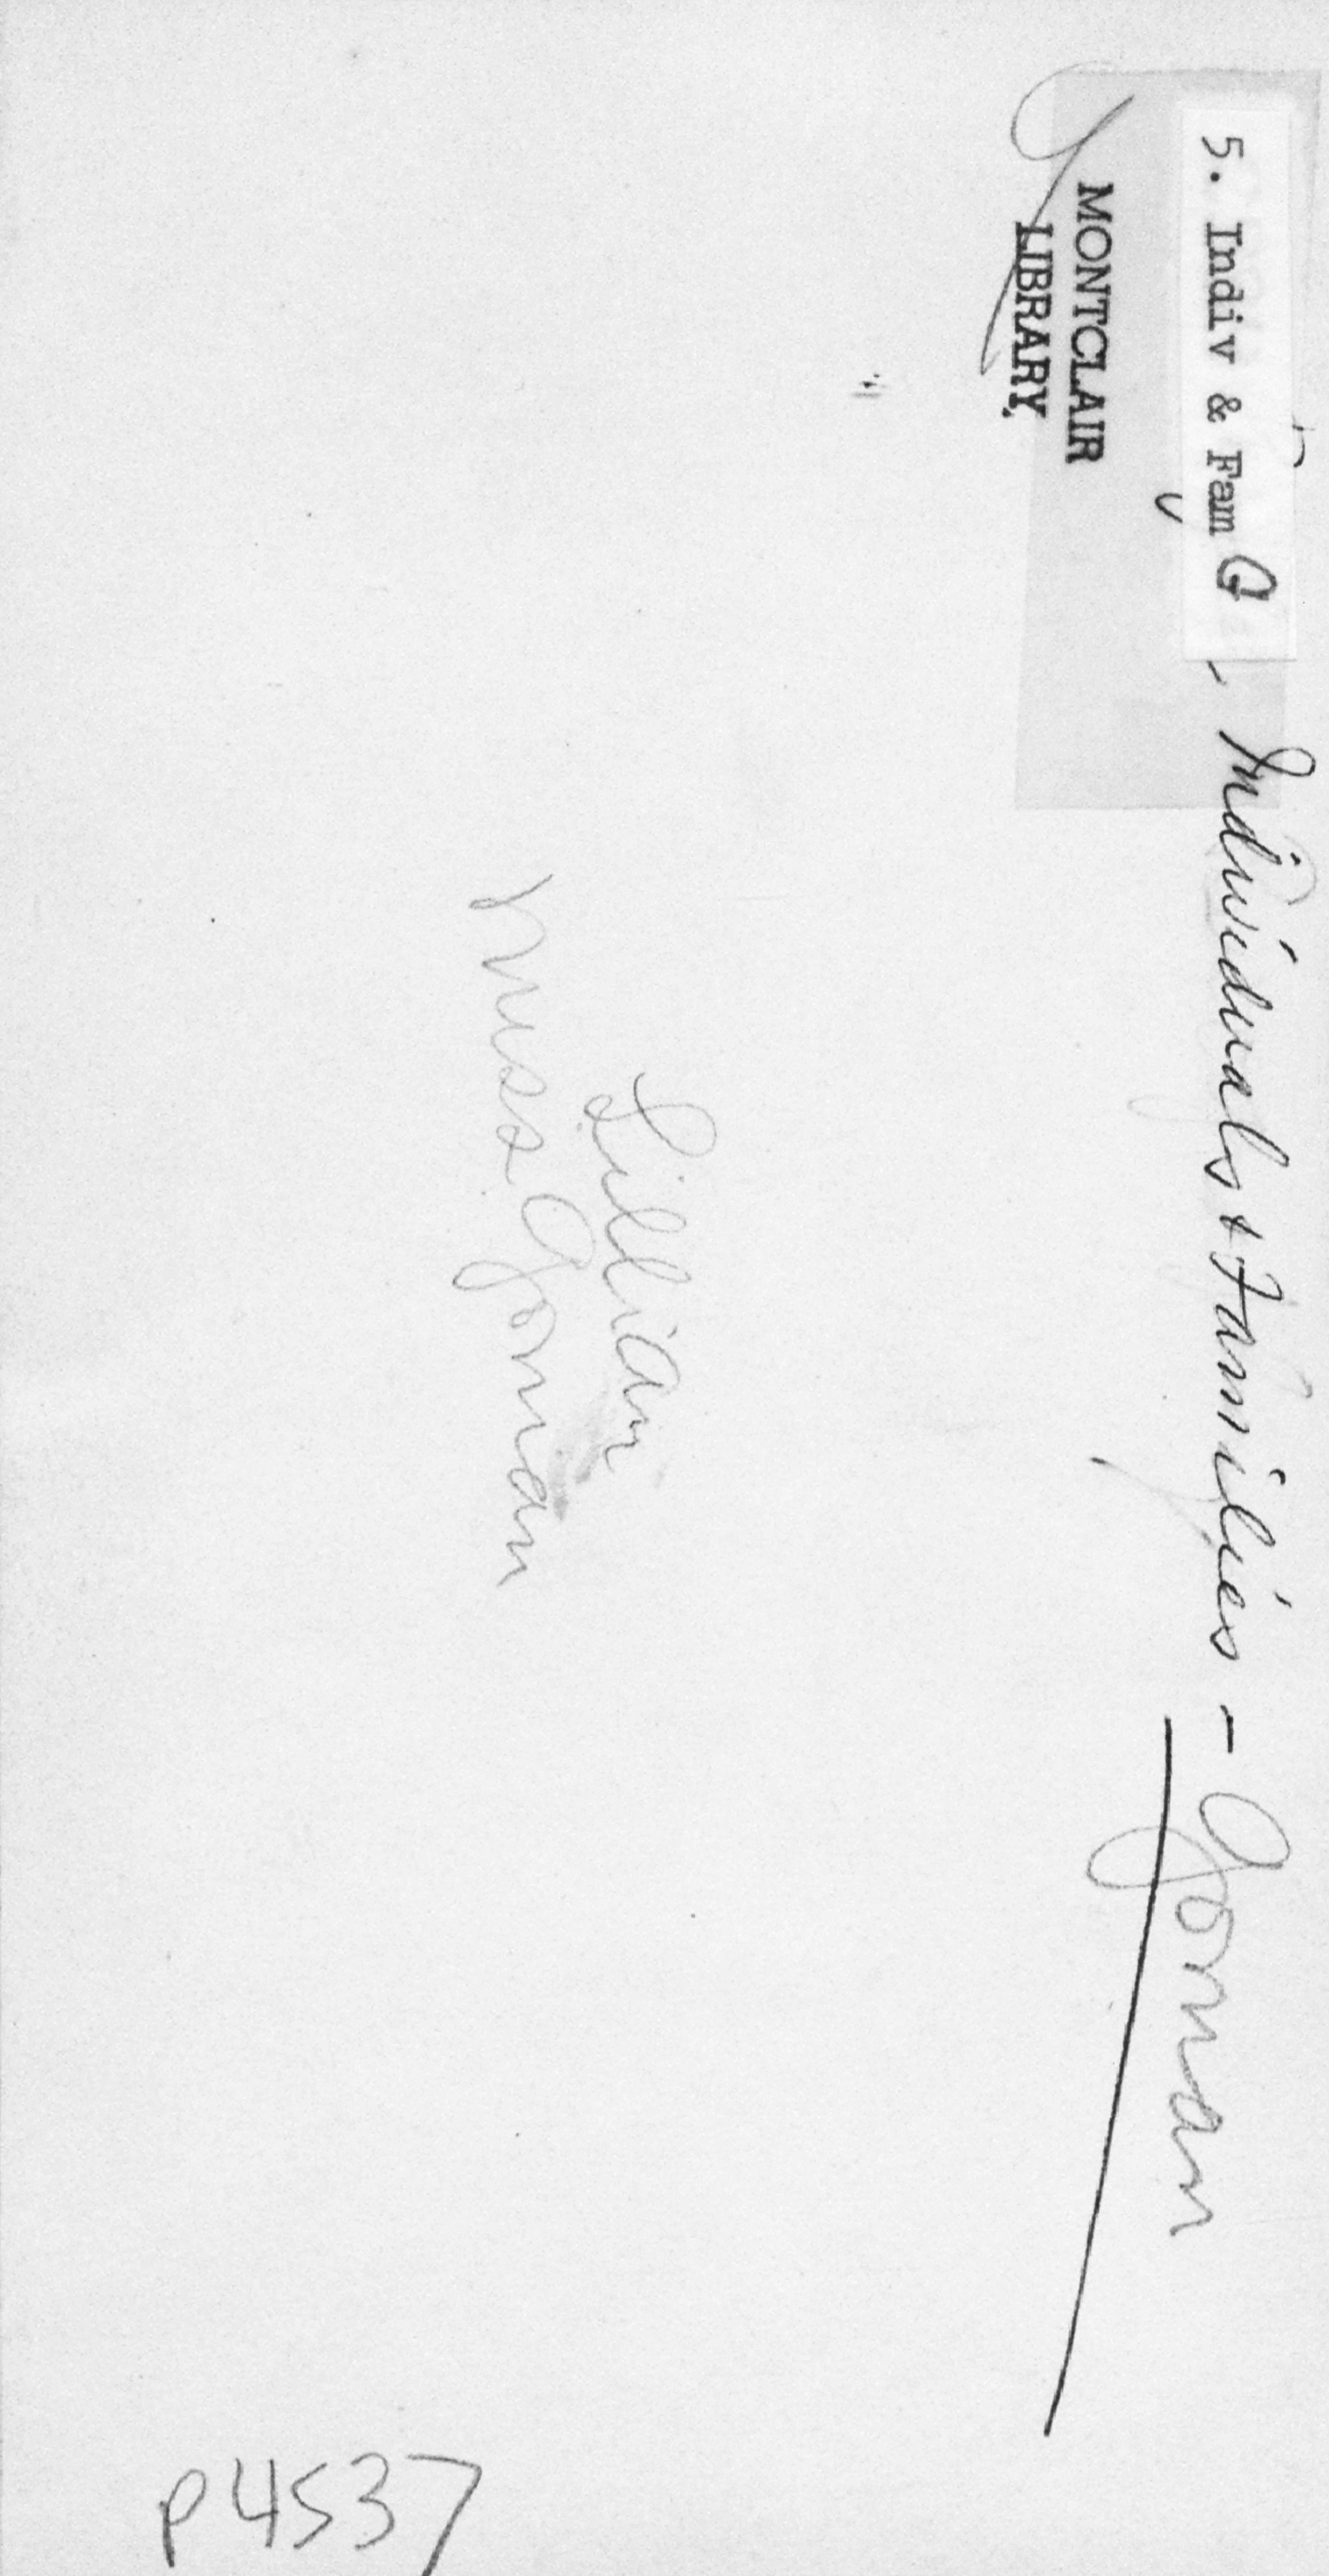 5. Indiv & Fam G, Individuals & Families - Gorman
MONTCLAIR
LIBRARY
Lillian
Miss Gorman
P4537